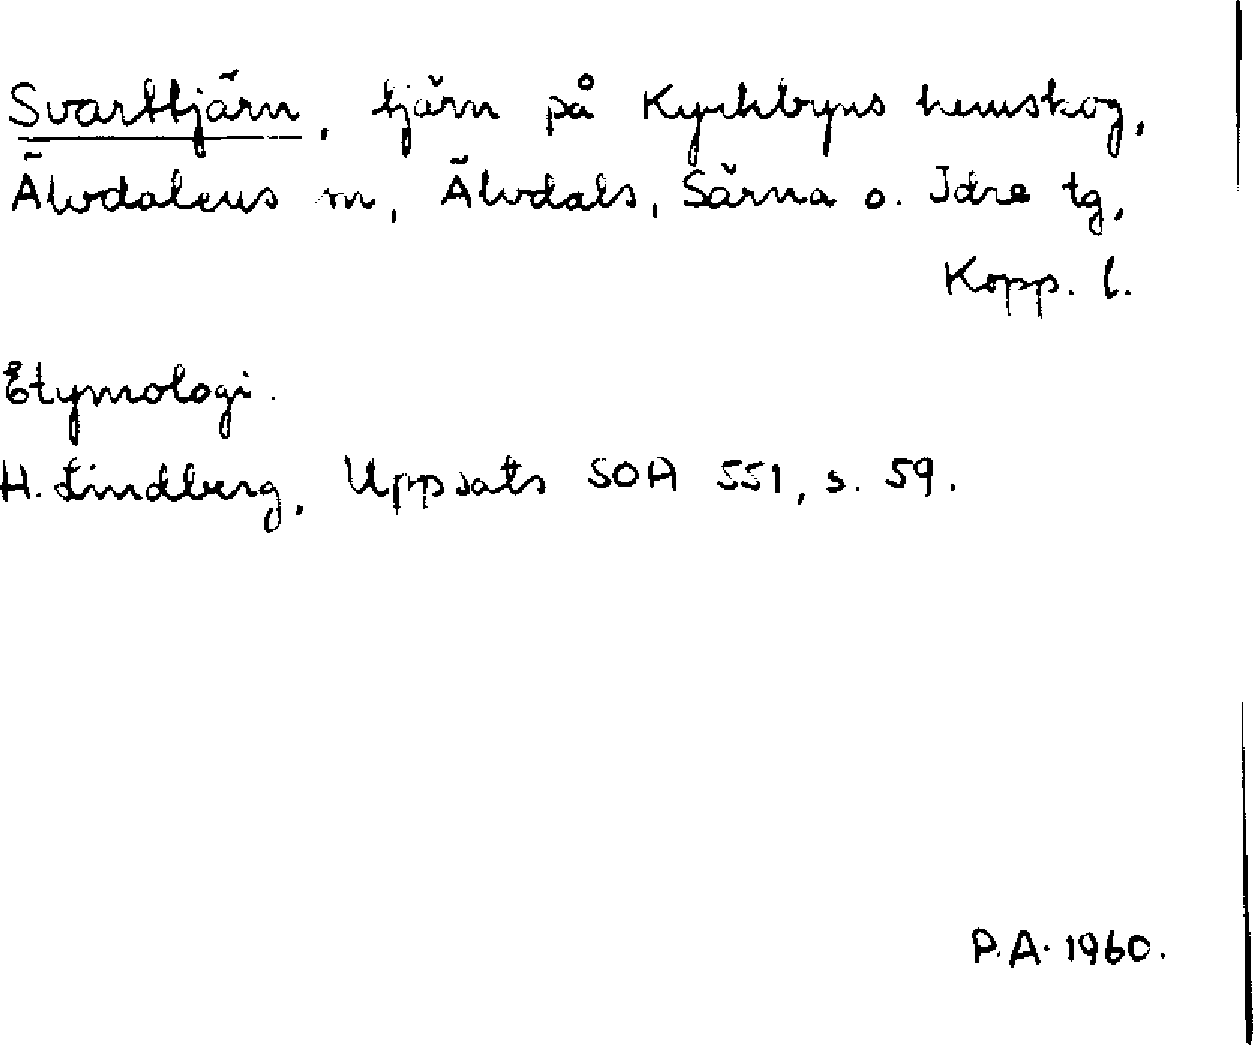 Svarttjärn, tjärn på Kyrkbyns hemskog,
Älvdalens sn, Älvdals, Särna o. Idre tg,
Kopp. l.
Etymologi.
H. Lindberg, Uppsats SOA 551, s. 59.
P.A. 1960.